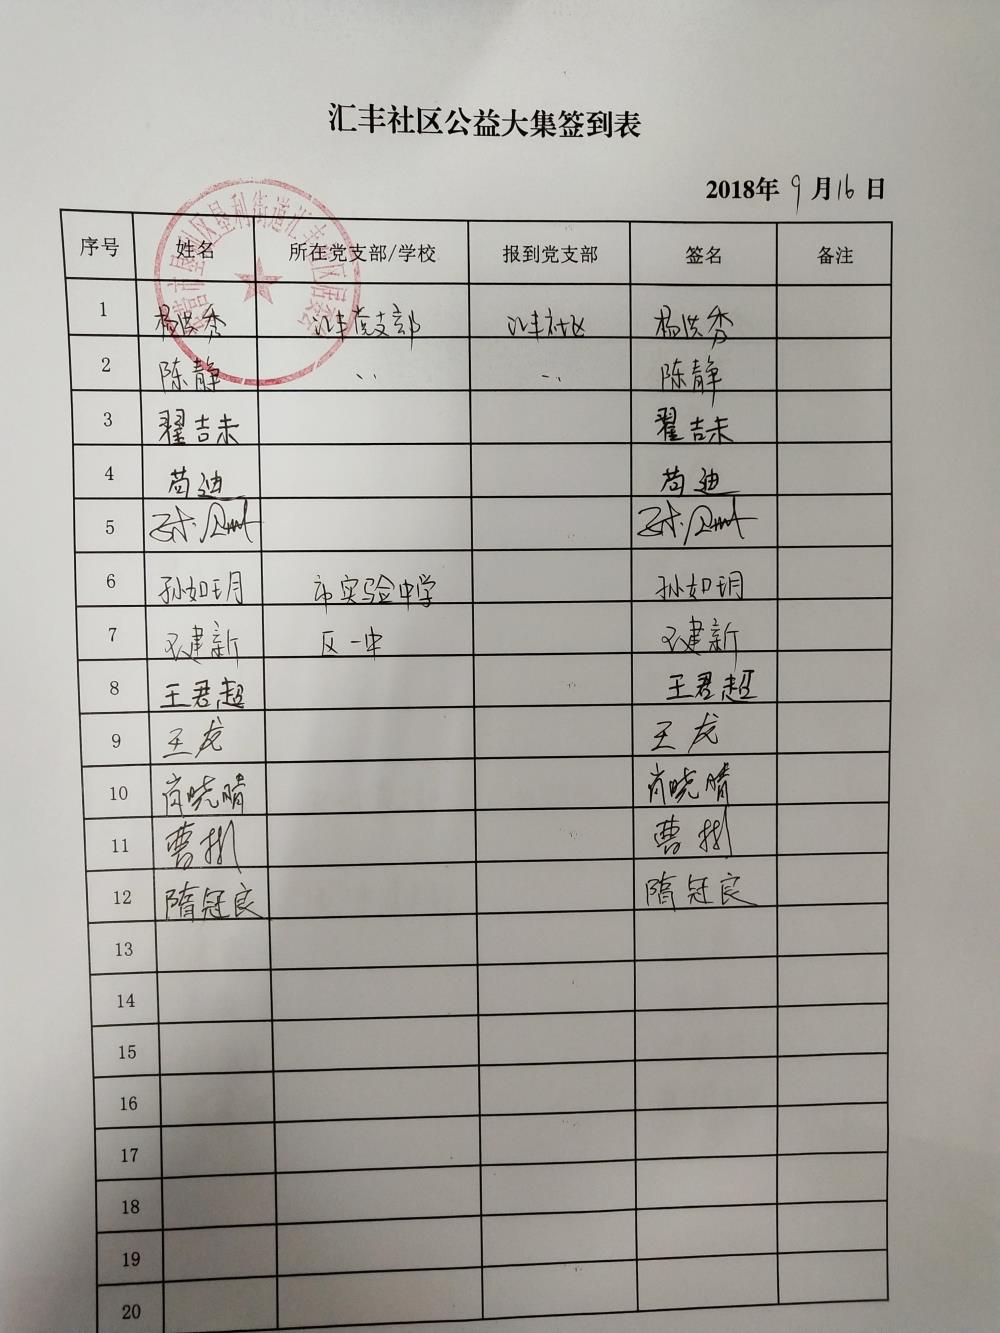 汇丰社区公益大集签到表
2018年 9 月 16 日
序号 姓名 所在党支部/学校 报到党支部 签名 备注
1 杨洪秀 汇丰党支部 汇丰社区 杨洪秀
2 陈静 〃 〃 陈静
3 翟吉未 翟吉未
4 苟迪 苟迪
5
6 孙如玥 市实验中学 孙如玥
7 建新 区一中 建新
8 王君超 王君超
9 王龙 王龙
10 肖晓晴 肖晓晴
11 曹彬 曹彬
12 隋冠良 隋冠良
13
14
15
16
17
18
19
20